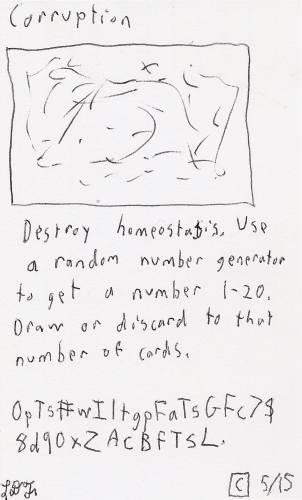 Corruption
Destroy homeostasis. Use
a random number generator
to get a number 1-20.
Draw or discard to that
number of cards.
OpTs#wIltgpFaTsGFc7$
8d90xZAcBFTsL.
C 5/15